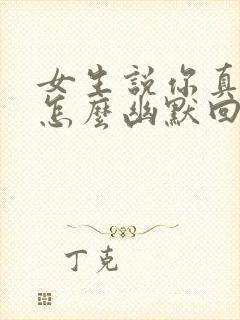 女生説你真
怎麼幽默回
丁克